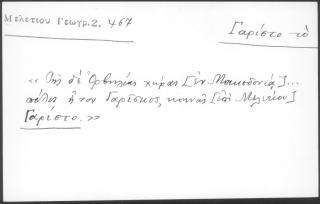 Μελετίου Γεωγρ. 2, 467
Γαρίστο τὸ
« Τῆς δὲ Ὀρβηλίας χώρας [ἐν Μακεδονίᾳ]...
πόλις ἦτον Γαρίσκος, κοινῶς [ἐπὶ Μελενίκου]
Γαρίστο. »